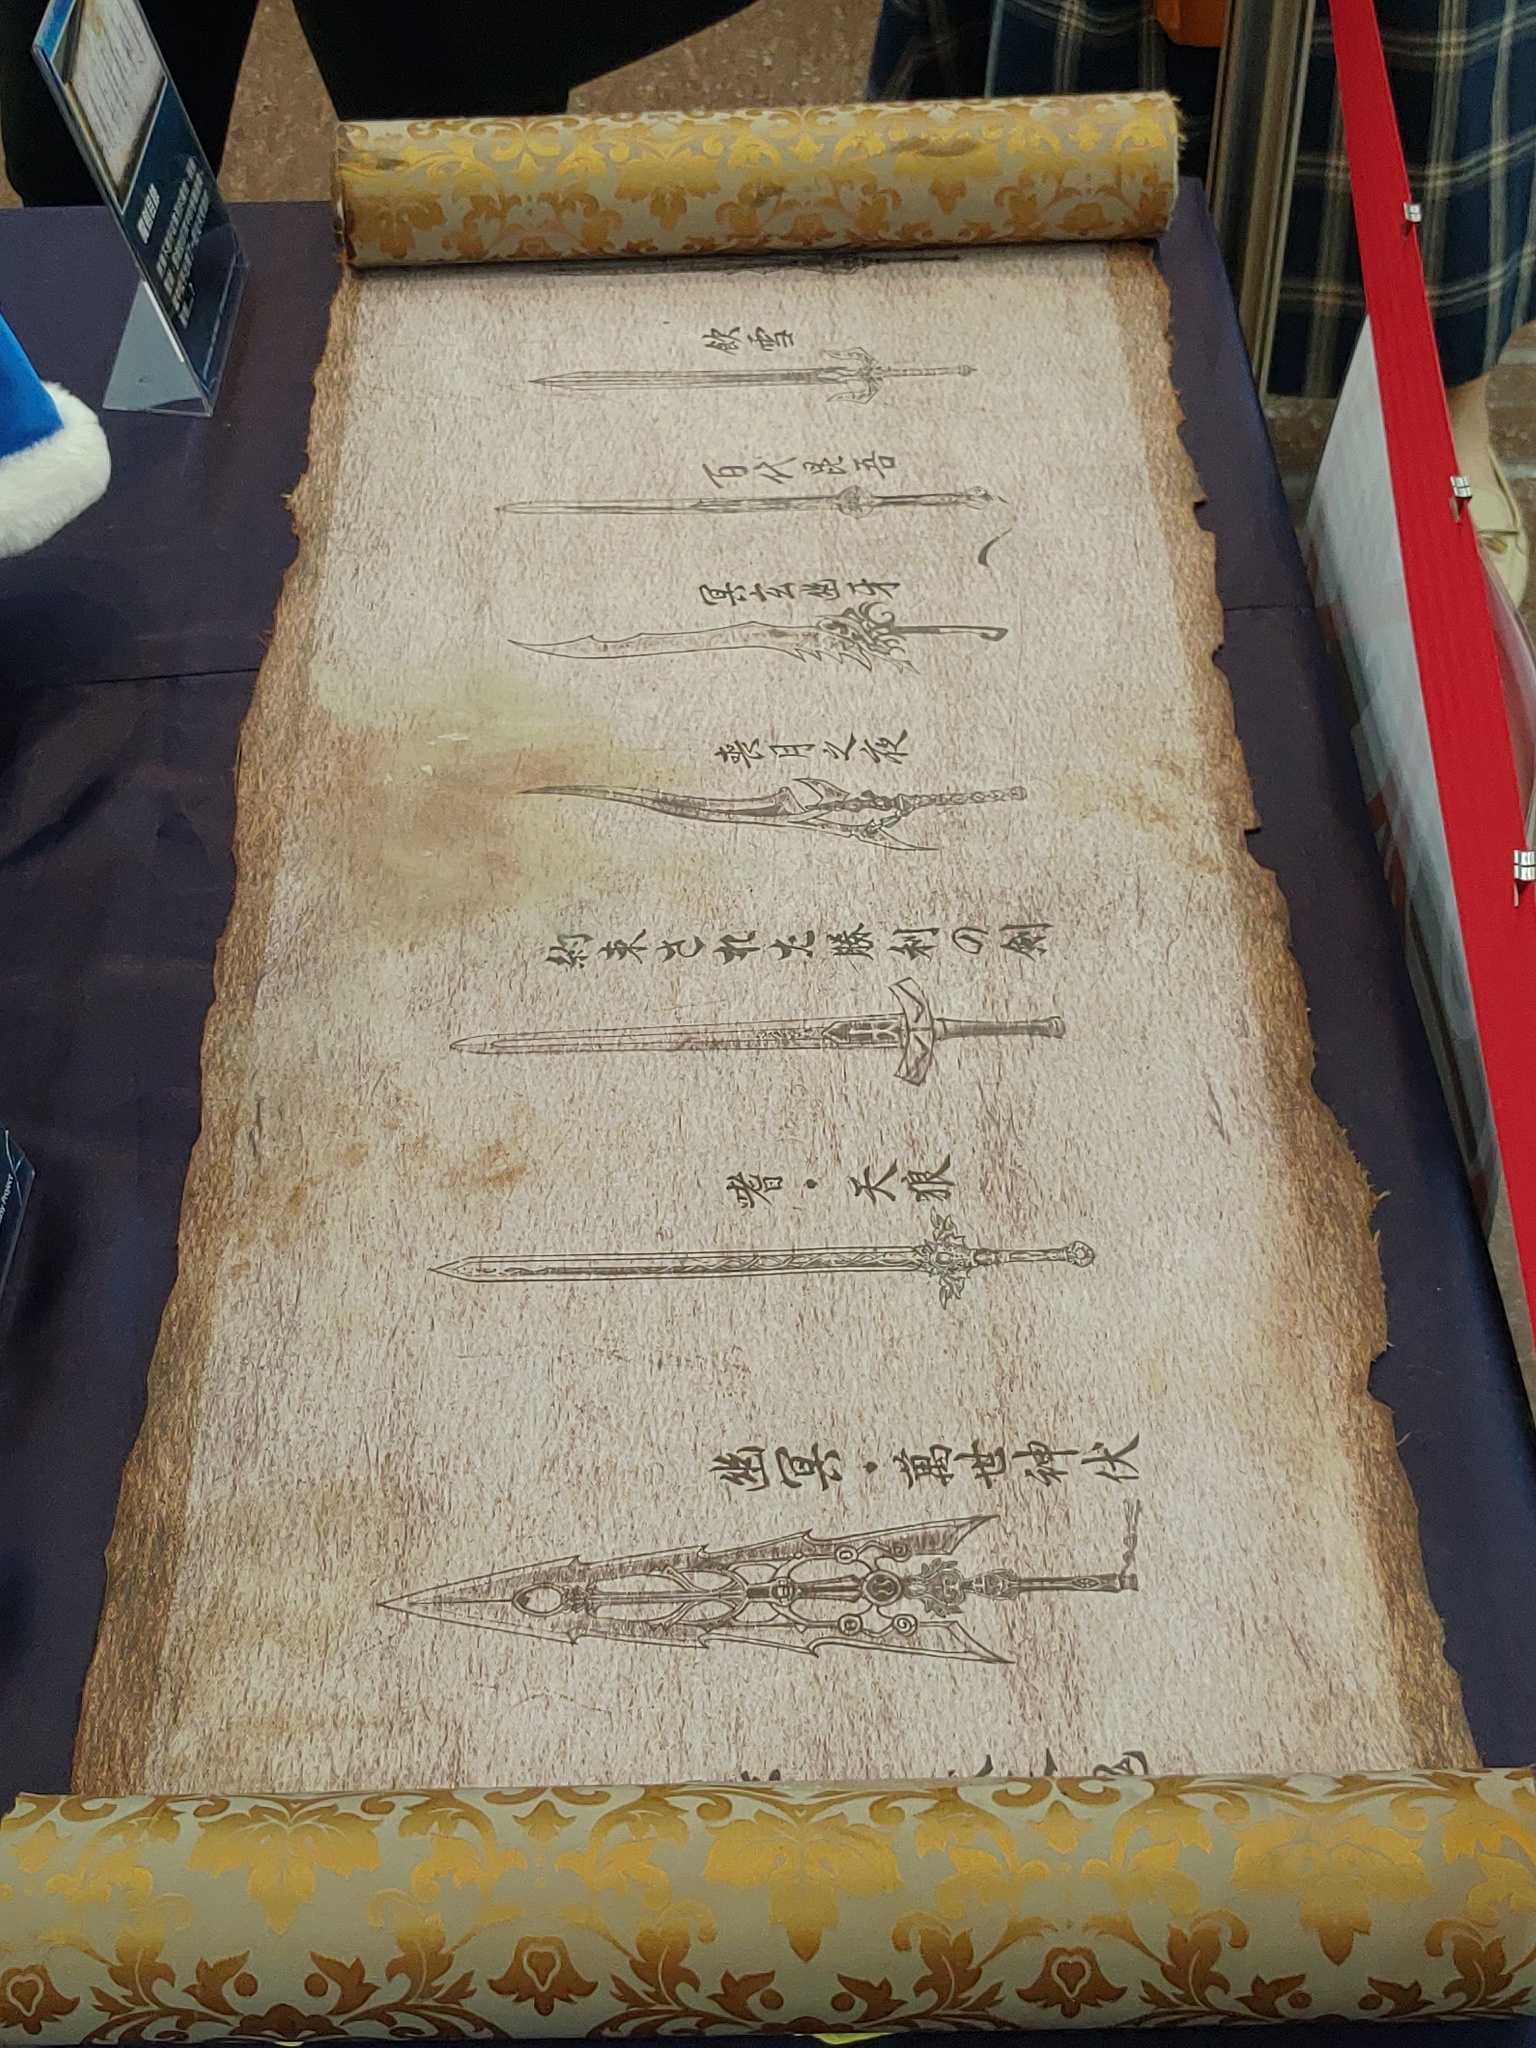 飲雪
百代昆吾
冥玄幽牙
喪月之夜
約束された勝利の剣
嗜・天狼
幽冥・萬世神伏
Project